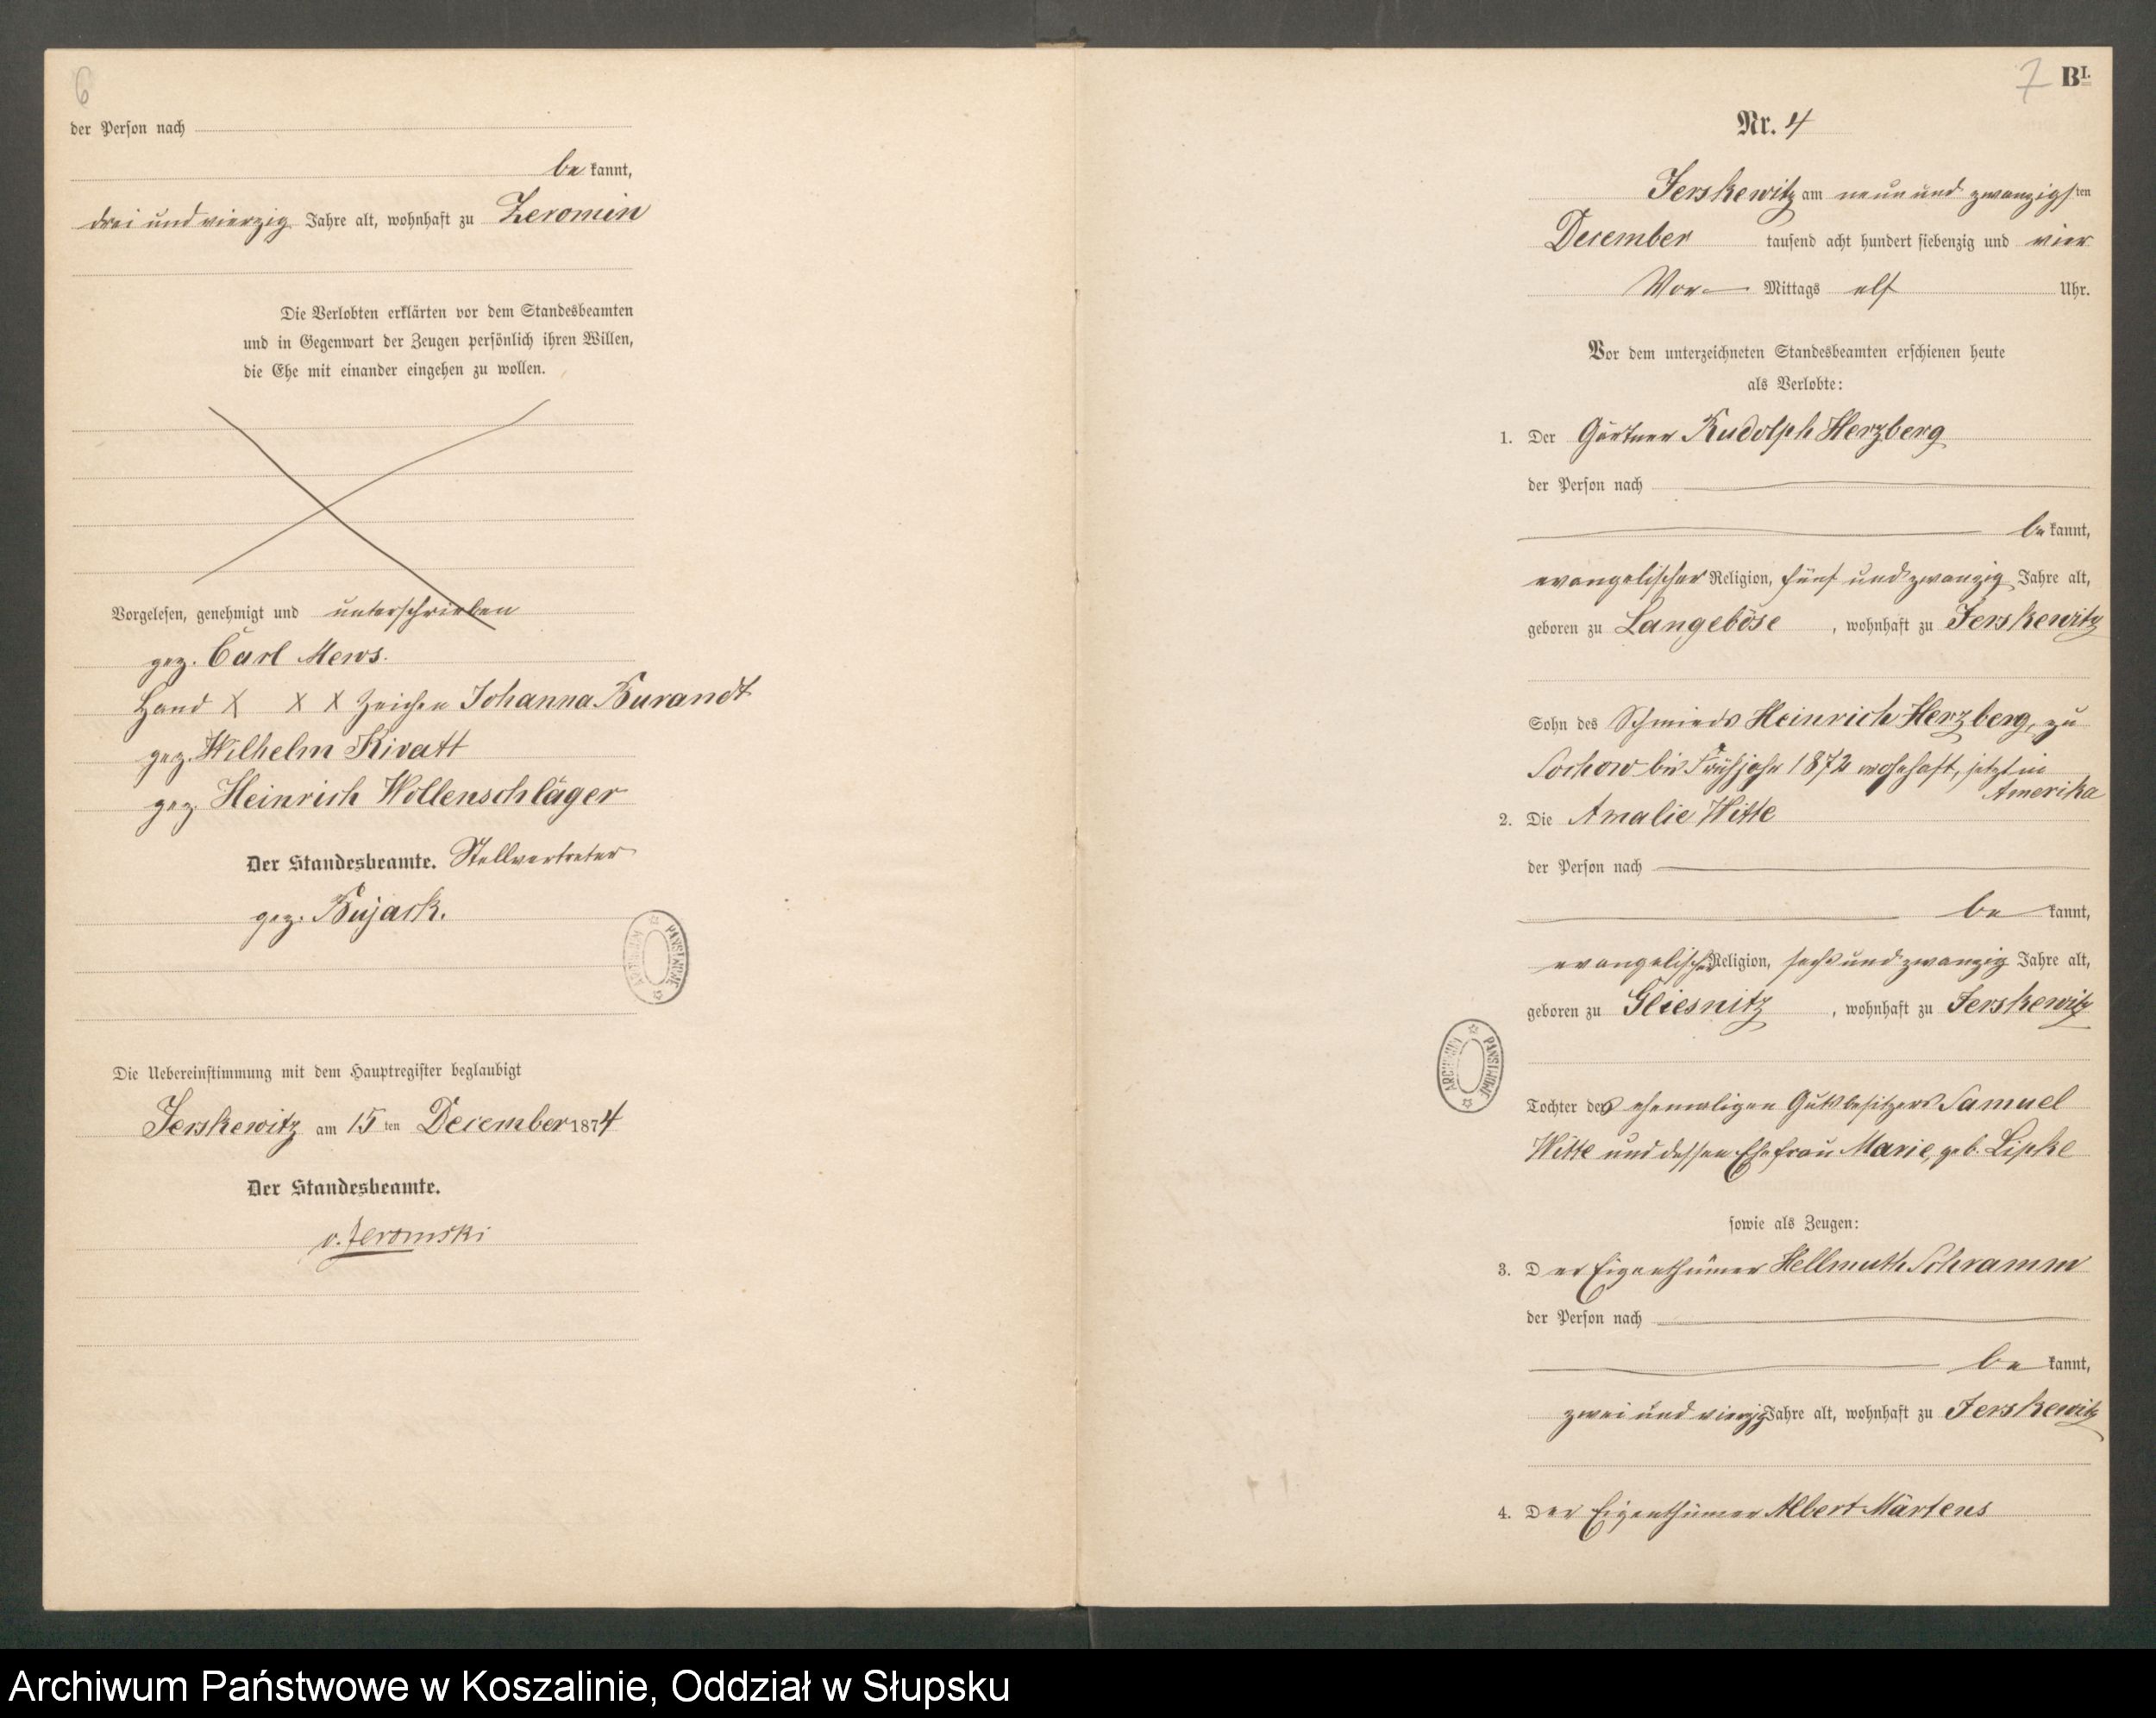 6
der Person nach
be kannt,
drei und vierzig Jahre alt, wohnhaft zu Zeromin
Die Verlobten erklärten vor dem Standesbeamten
und in Gegenwart der Zeugen persönlich ihren Willen,
die Ehe mit einander eingehen zu wollen.
Vorgelesen, genehmigt und unterschrieben
gez. Carl Mews.
Hand X X X Zeichen Johanna Burandt
gez. Wilhelm Kivatt
gez. Heinrich Wollenschläger
Der Standesbeamte. Stellvertreter
gez. Bujack.
Die Uebereinstimmung mit dem Hauptregister beglaubigt
Jerskewitz am 15 ten December 1874
Der Standesbeamte.
v. Zeromski
7 BI.
Nr. 4
Jerskewitz am neun und zwanzigsten
December tausend acht hundert siebenzig und vier
Vor Mittags elf Uhr.
Vor dem unterzeichneten Standesbeamten erschienen heute
als Verlobte:
1. Der Gärtner Rudolph Herzberg
der Person nach
be kannt,
evangelischer Religion, fünf und zwanzig Jahre alt,
geboren zu Langeböse, wohnhaft zu Jerskewitz
Sohn des Schmieds Heinrich Herzberg, zu
Sochow bis Frühjahr 1872 wohnhaft, jetzt in
Amerika
2. Die Amalie Witte
der Person nach
be kannt,
evangelischer Religion, sechs und zwanzig Jahre alt,
geboren zu Gliesnitz, wohnhaft zu Jerskewitz
Tochter des ehemaligen Gutsbesitzers Samuel
Witte und dessen Ehefrau Marie, geb. Lipke
sowie als Zeugen:
3. Der Eigenthümer Hellmuth Schramm
der Person nach
be kannt,
zwei und vierzig Jahre alt, wohnhaft zu Jerskewitz
4. Der Eigenthümer Albert Märtens
ARCHIWUM PAŃSTWOWE
ARCHIWUM PAŃSTWOWE
Archiwum Państwowe w Koszalinie, Oddział w Słupsku